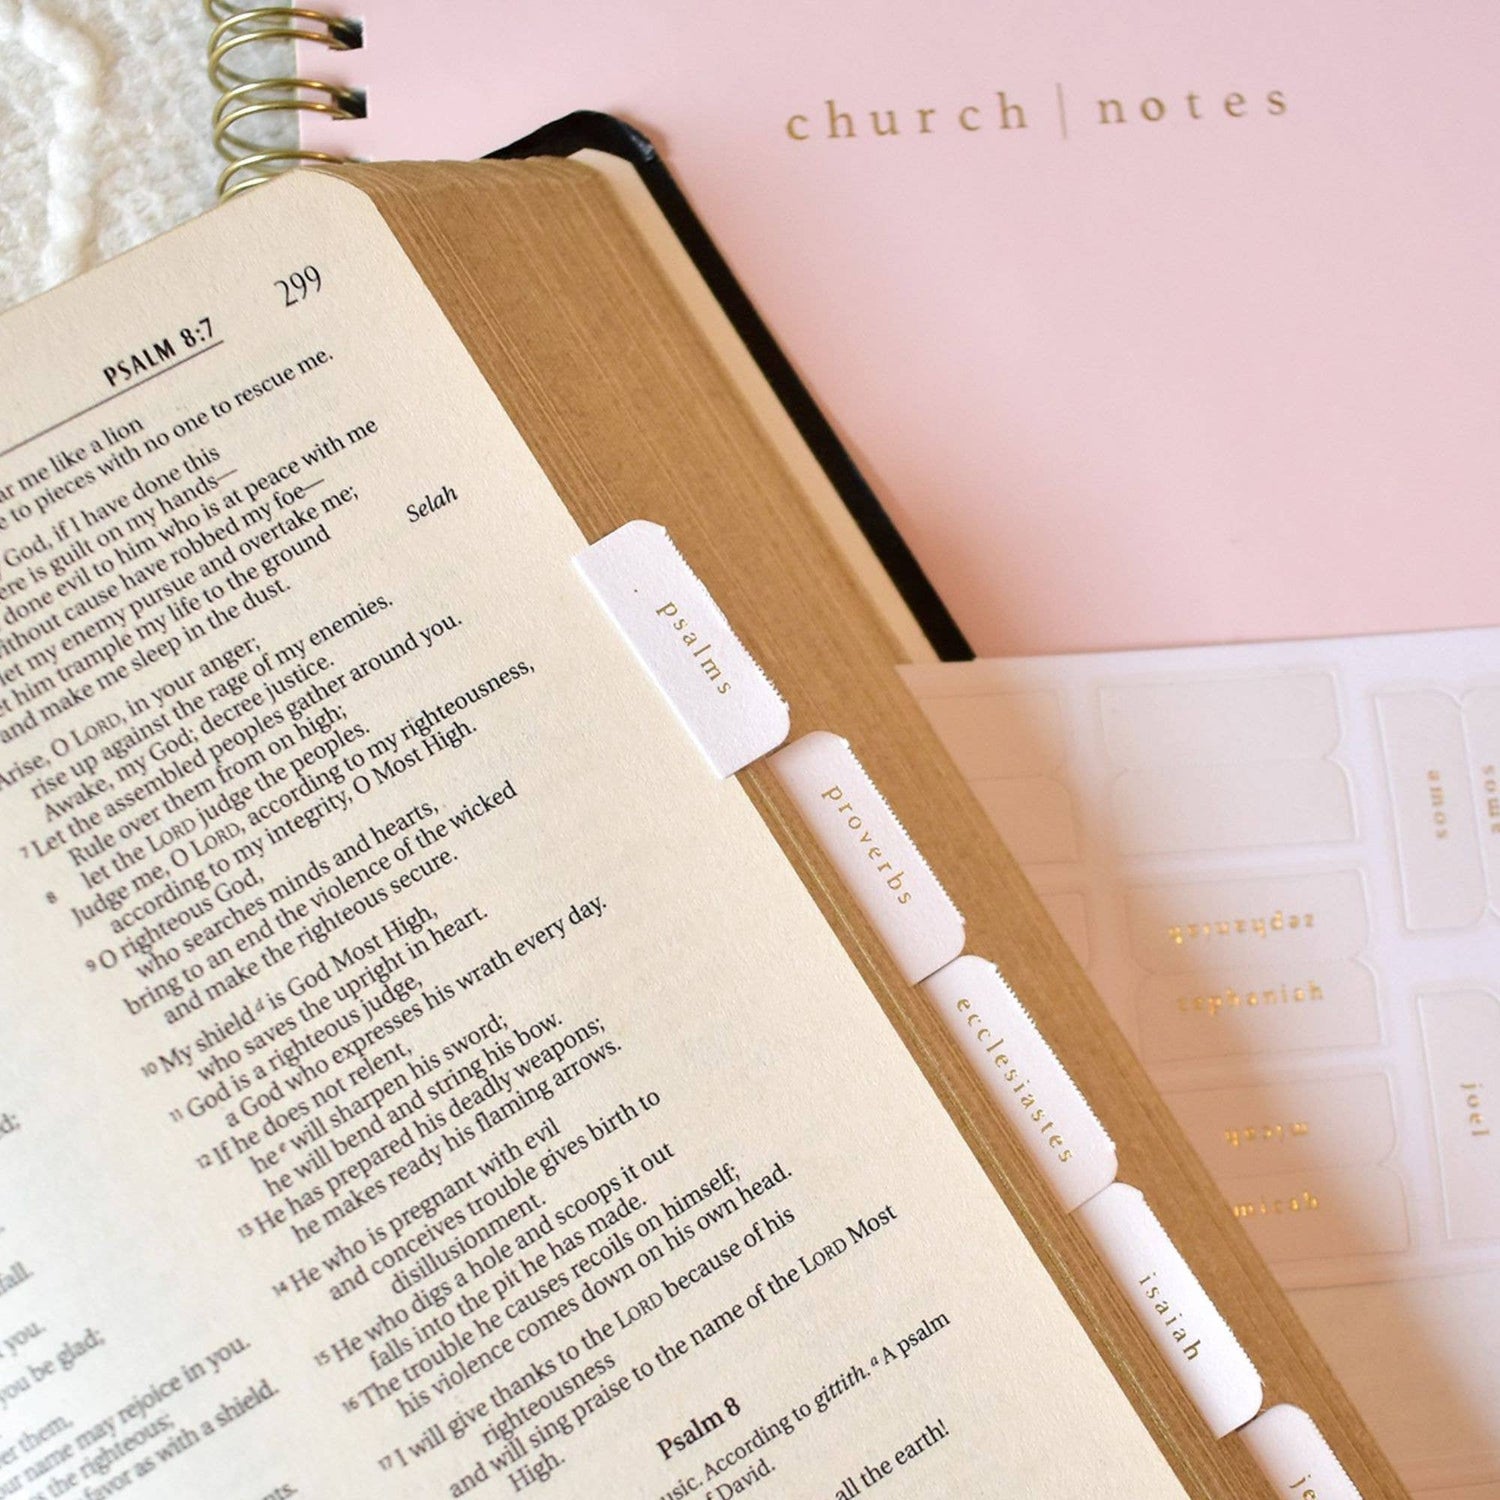 church | notes
299
PSALM 8:7
me like a lion
to pieces with no one to rescue me.
God, if I have done this
is guilt on my hands—
done evil to him who is at peace with me
without cause have robbed my foe—
let my enemy pursue and overtake me;
him trample my life to the ground
and make me sleep in the dust.
Selah
Arise, O LORD, in your anger;
rise up against the rage of my enemies.
Awake, my God; decree justice.
7 Let the assembled peoples gather around you.
Rule over them from on high;
8 let the LORD judge the peoples.
Judge me, O LORD, according to my righteousness,
according to my integrity, O Most High.
9 O righteous God,
who searches minds and hearts,
bring to an end the violence of the wicked
and make the righteous secure.
10 My shield d is God Most High,
who saves the upright in heart.
11 God is a righteous judge,
a God who expresses his wrath every day.
12 If he does not relent,
he e will sharpen his sword;
he will bend and string his bow.
13 He has prepared his deadly weapons;
he makes ready his flaming arrows.
14 He who is pregnant with evil
and conceives trouble gives birth to
disillusionment.
15 He who digs a hole and scoops it out
falls into the pit he has made.
16 The trouble he causes recoils on himself;
his violence comes down on his own head.
17 I will give thanks to the LORD because of his
righteousness
and will sing praise to the name of the LORD Most
High.
Psalm 8
According to gittith. a A psalm
of David.
all the earth!
you.
you be glad;
name may rejoice in you.
the righteous;
favor as with a shield.
them,
psalms
proverbs
ecclesiastes
isaiah
je
amos
zephaniah
zephaniah
micah
micah
joel